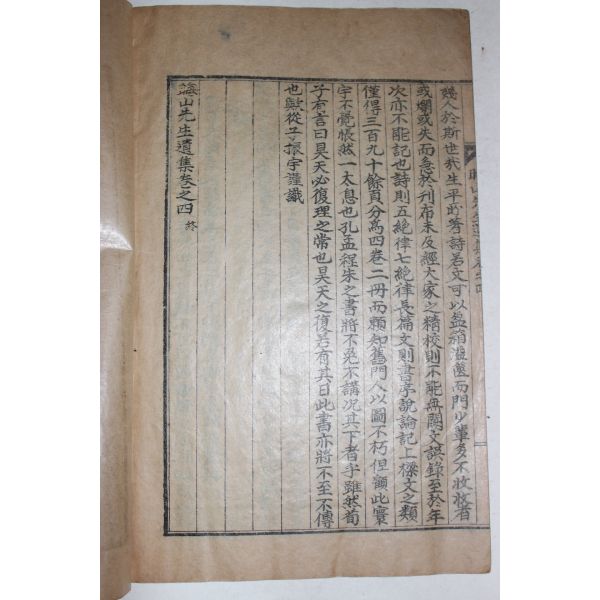 幾人於斯世我生平所著詩若文可以盈箱溢篋而門少輩多不收收者
或爛或失而急於刊布未及經大家之精校則不能無闕文誤錄至於年
次亦不能記也詩則五絶律七絶律長篇文則書序說論記上樑文之類
僅得三百九十餘頁分爲四卷二冊而頼知舊門人以圖不朽但顧此寰
宇不覺悵然一太息也孔孟程朱之書將不免不講况其下者乎雖然荀
子有言曰昊天必復理之常也昊天之復若有其日此書亦將不至不傳
也歟從子振宇謹識
山先生遺集卷之四 終
山先生遺集卷之四